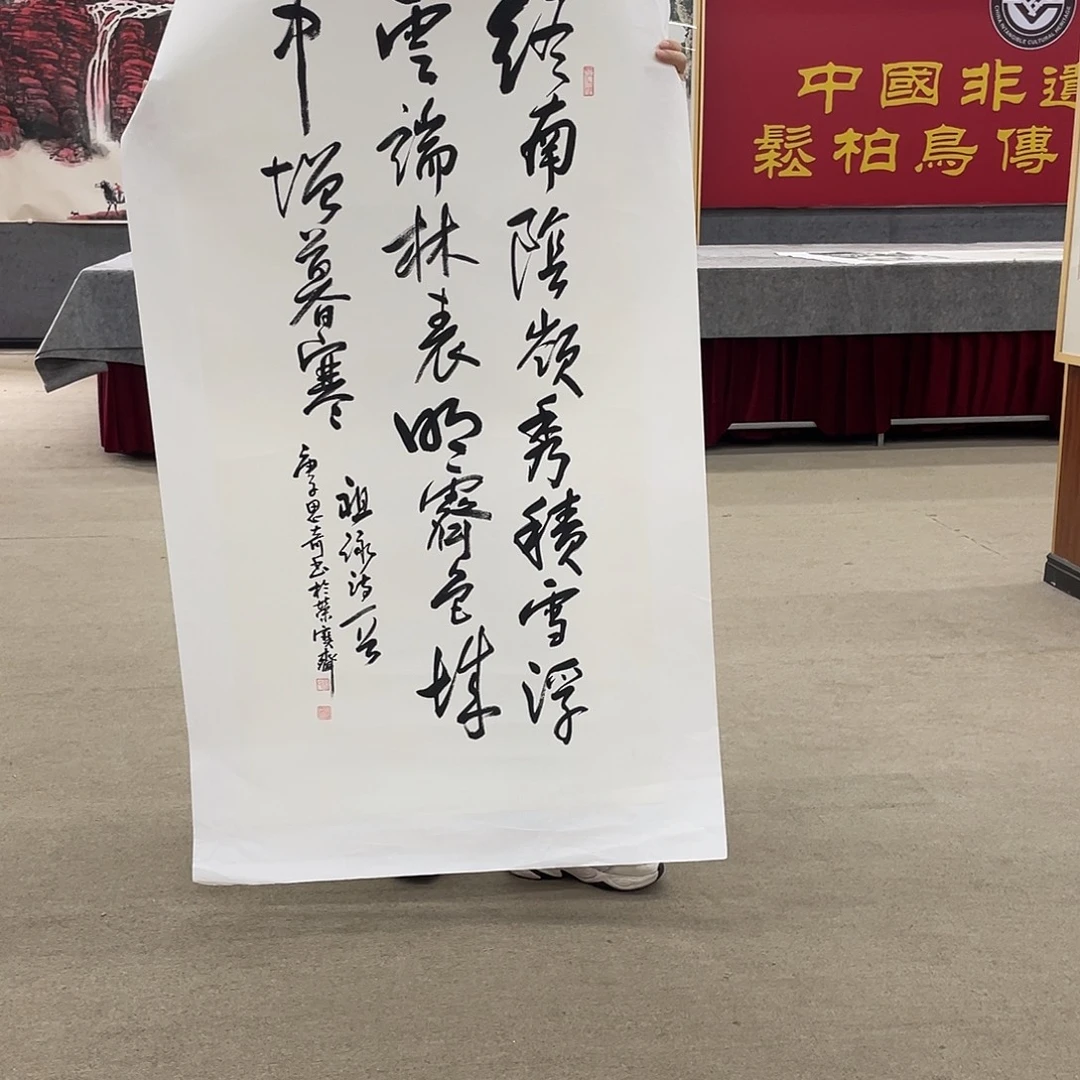 終南陰嶺秀積雪浮
雲端林表明霽色城
中增暮寒
祖詠詩一首
庚子思奇书於荣寶齋
中國非遺
鬆柏鳥傳
CHINA INTANGIBLE CULTURAL HERITAGE